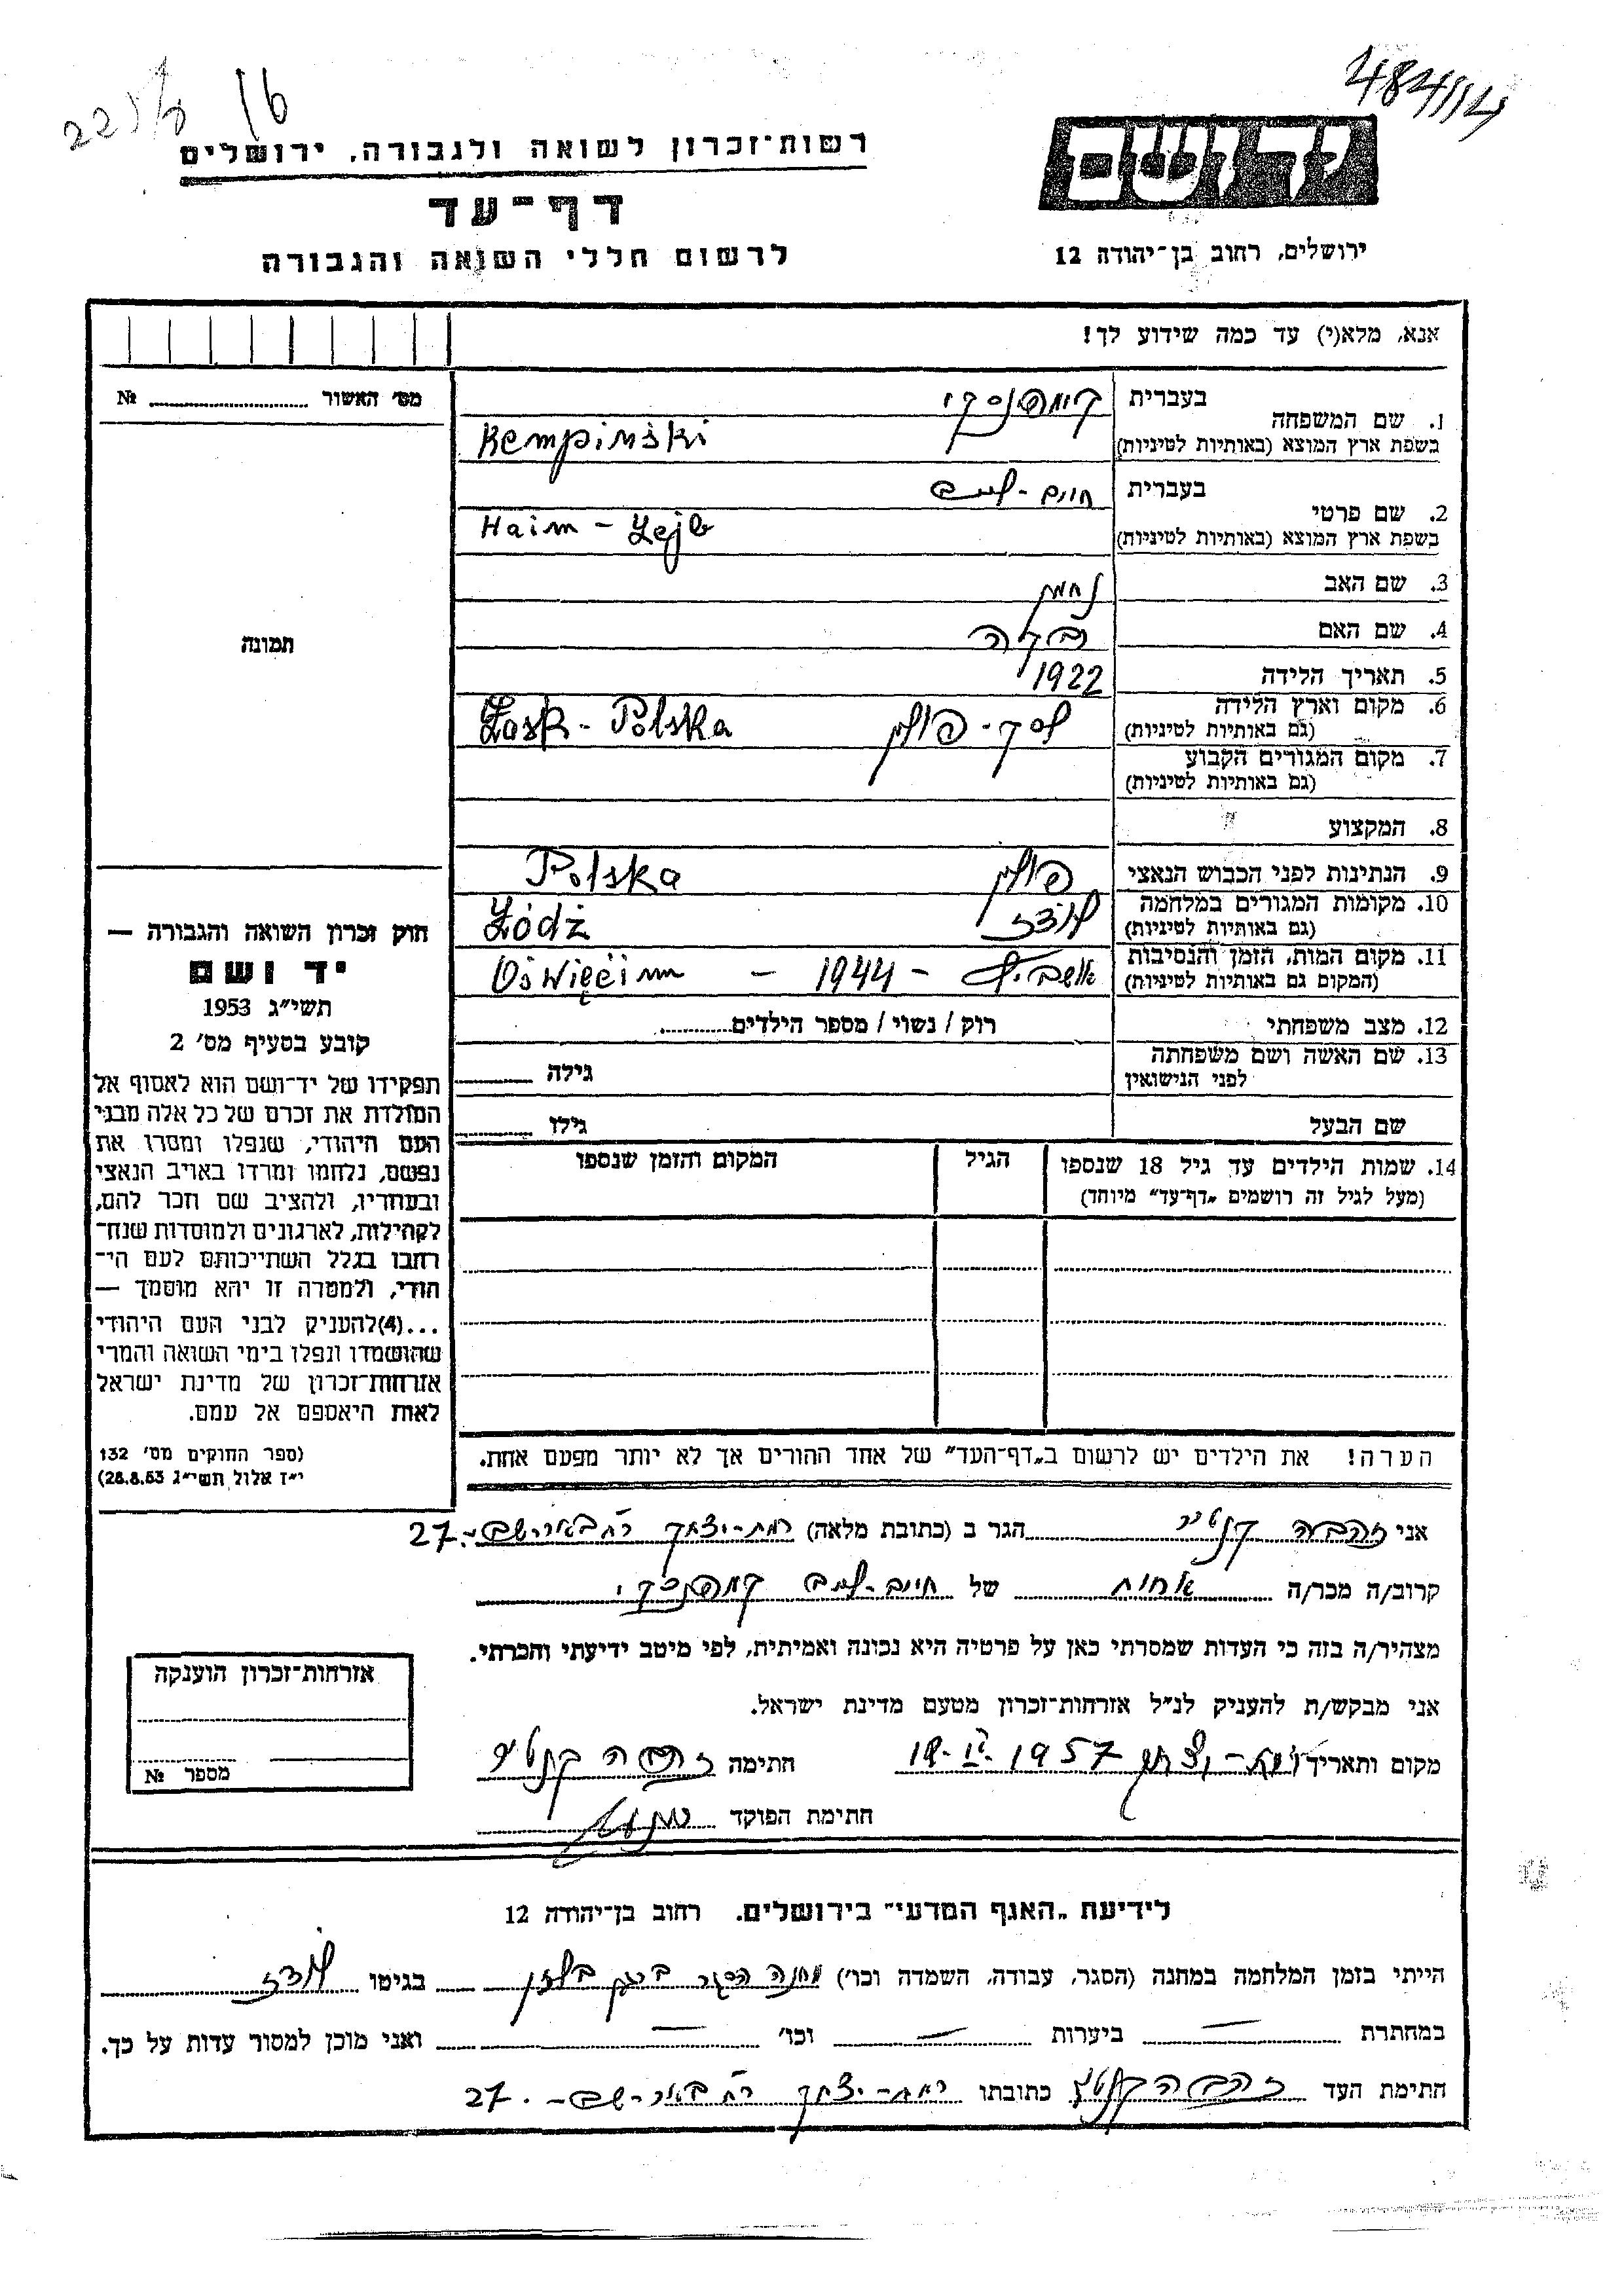 484114
16
רשות־זכרון לשואה ולגבורה, ירושלים
יד ושם
דף־עד
ירושלים, רחוב בן־יהודה 12
לרשום חללי השואה והגבורה
אנא, מלא(י) עד כמה שידוע לך!
מס׳ האשור № 
1. שם המשפחה
בעברית קמפינסקי
בשפת ארץ המוצא (באותיות לטיניות) Kempiński
2. שם פרטי
בעברית חיים-לייב
בשפת ארץ המוצא (באותיות לטיניות) Haim - Lejb
3. שם האב נחמן
4. שם האם
5. תאריך הלידה 1922
6. מקום וארץ הלידה לסק - פולין Łask - Polska
(גם באותיות לטיניות)
7. מקום המגורים הקבוע
(גם באותיות לטיניות)
8. המקצוע
9. הנתינות לפני הכבוש הנאצי פולין Polska
10. מקומות המגורים במלחמה לודז Łódź
(גם באותיות לטיניות)
11. מקום המות, הזמן והנסיבות אושביץ - 1944 - Oświęcim
(המקום גם באותיות לטיניות)
12. מצב משפחתי רוק / נשוי / מספר הילדים
13. שם האשה ושם משפחתה
לפני הנישואין גילה
שם הבעל גילו
14. שמות הילדים עד גיל 18 שנספו הגיל המקום והזמן שנספו
(מעל לגיל זה רושמים „דף־עד” מיוחד)
הערה! את הילדים יש לרשום ב„דף־העד” של אחד ההורים אך לא יותר מפעם אחת.
תמונה
חוק זכרון השואה והגבורה —
יד ושם
תשי״ג 1953
קובע בסעיף מס׳ 2
תפקידו של יד־ושם הוא לאסוף אל
המולדת את זכרם של כל אלה מבני
העם היהודי, שנפלו ומסרו את
נפשם, נלחמו ומרדו באויב הנאצי
ובעוזריו, ולהציב שם וזכר להם,
לקהילות, לארגונים ולמוסדות שנח־
רבו בגלל השתייכותם לעם הי־
הודי, ולמטרה זו יהא מוסמך —
...(4)להעניק לבני העם היהודי
שהושמדו ונפלו בימי השואה והמרי
אזרחות־זכרון של מדינת ישראל
לאות היאספם אל עמם.
(ספר החוקים מס׳ 132
י״ז אלול תשי״ג 28.8.53)
אני זהבה קנטור הגר ב (כתובת מלאה) רמת-יצחק רח׳ באר-שבע - 27
קרוב/ה מכר/ה אחות של חיים-לייב קמפינסקי
מצהיר/ה בזה כי העדות שמסרתי כאן על פרטיה היא נכונה ואמיתית, לפי מיטב ידיעתי והכרתי.
אני מבקש/ת להעניק לנ״ל אזרחות־זכרון מטעם מדינת ישראל.
מקום ותאריך רמת-יצחק 1957 חתימה זהבה קנטור
חתימת הפוקד
אזרחות־זכרון הוענקה
מספר №
לידיעת „האגף המדעי” בירושלים. רחוב בן־יהודה 12
הייתי בזמן המלחמה במחנה (הסגר, עבודה, השמדה וכו׳) מחנה הסגר ברגן בלזן בגיטו לודז
במחתרת — ביערות — וכו׳ — ואני מוכן למסור עדות על כך.
חתימת העד זהבה קנטור כתובתו רמת-יצחק רח׳ באר-שבע - 27